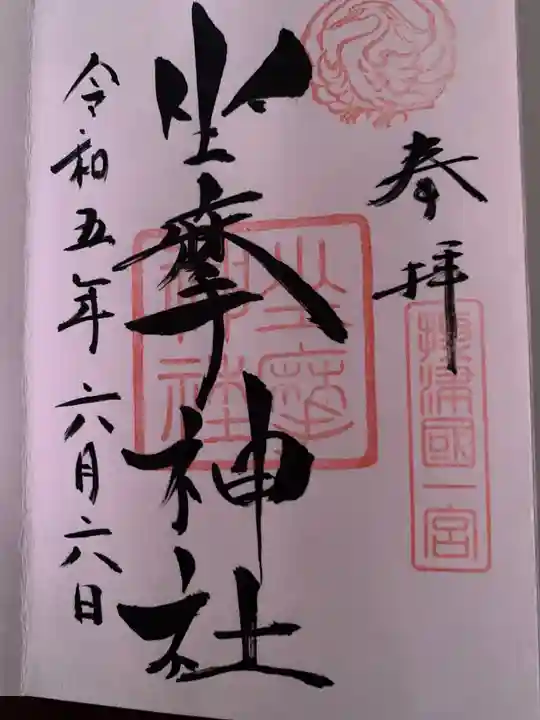 奉拝
攝津國一宮
坐摩神社
坐摩神社
令和五年六月六日